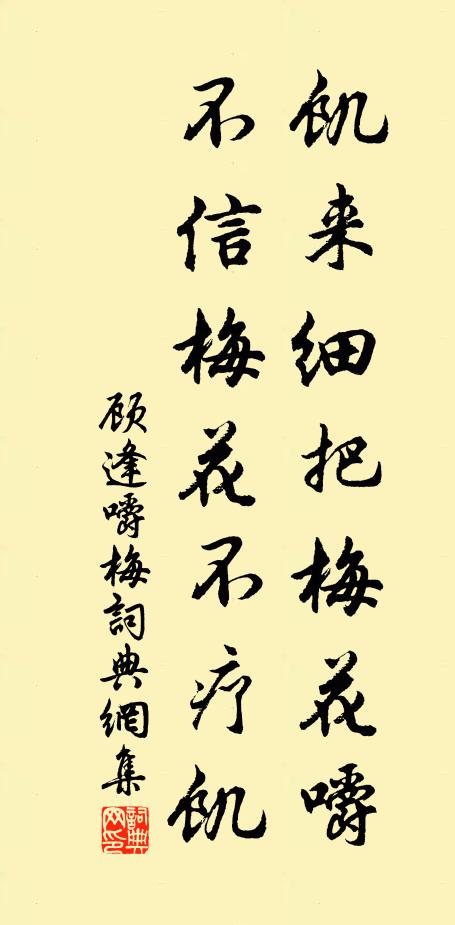 飢来细把梅花嚼
不信梅花不疗飢
顾逢嚼梅詞典網集
詞典网印